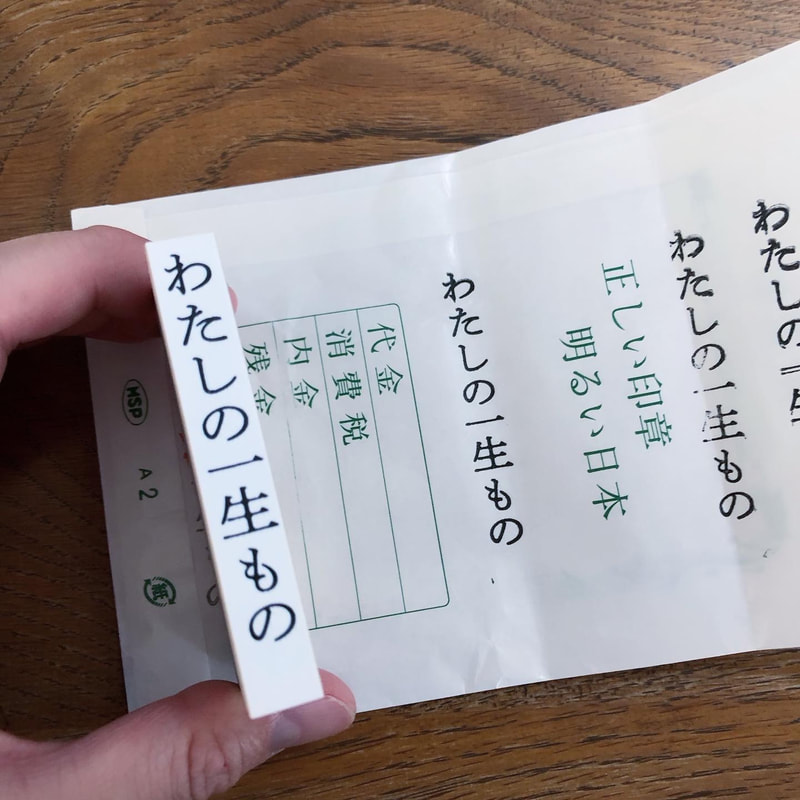 わたしの一生もの
わたしの一生もの
わたしの一生もの
正しい印章
明るい日本
わたしの一生もの
代金
消費税
内金
残金
MSP
A2
紙